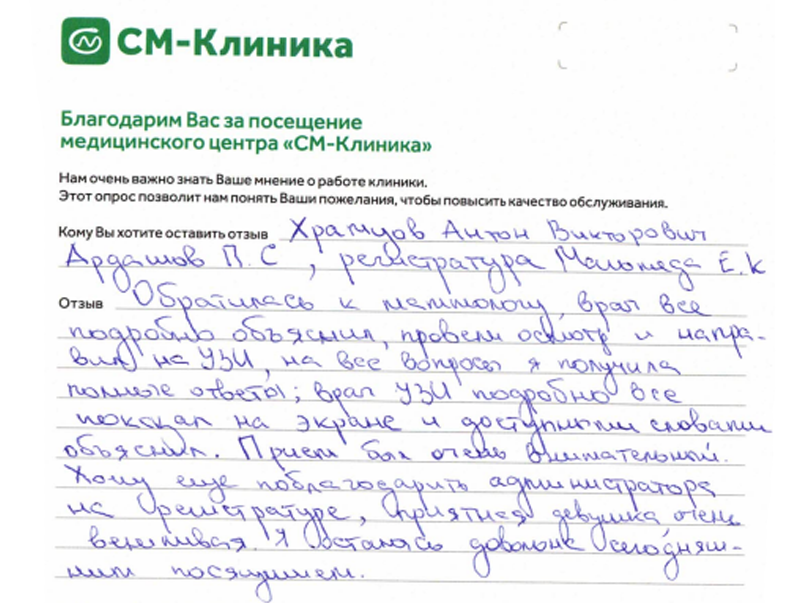 СМ-Клиника
Благодарим Вас за посещение
медицинского центра «СМ-Клиника»
Нам очень важно знать Ваше мнение о работе клиники.
Этот опрос позволит нам понять Ваши пожелания, чтобы повысить качество обслуживания.
Кому Вы хотите оставить отзыв Храмцов Антон Викторович
Ардашов П.С, регистратура Е.К
Отзыв Обратилась к маммологу, врач все
подробно объяснил, провели осмотр и напра-
вил на УЗИ, на все вопросы я получила
полные ответы; врач УЗИ подробно все
показал на экране и доступными словами
объяснил. Прием был очень внимательный.
Хочу еще поблагодарить администратора
на регистратуре, приятная девушка, очень
вежливая. Я осталась довольна сегодняш-
ним посящением.